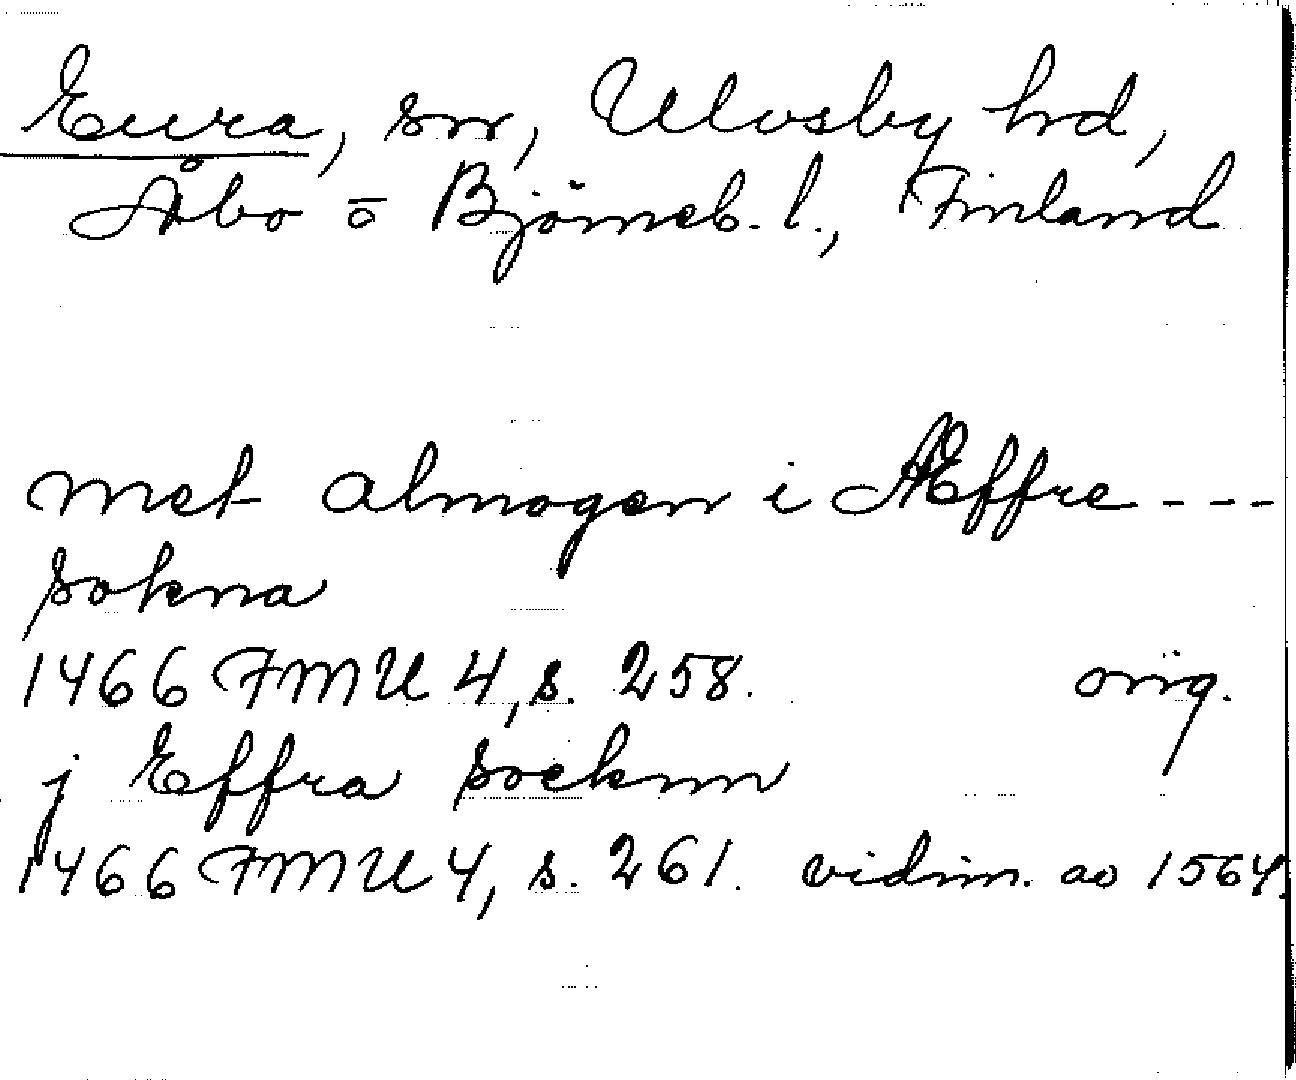 Eura, sn, Ulvsby hd,
Åbo o Björneb. l., Finland
met almogen i Æffre ---
sokna
1466 FMU 4, s. 258. orig.
j Effra socknn
1466 FMU 4, s. 261. vidim. av 1564.